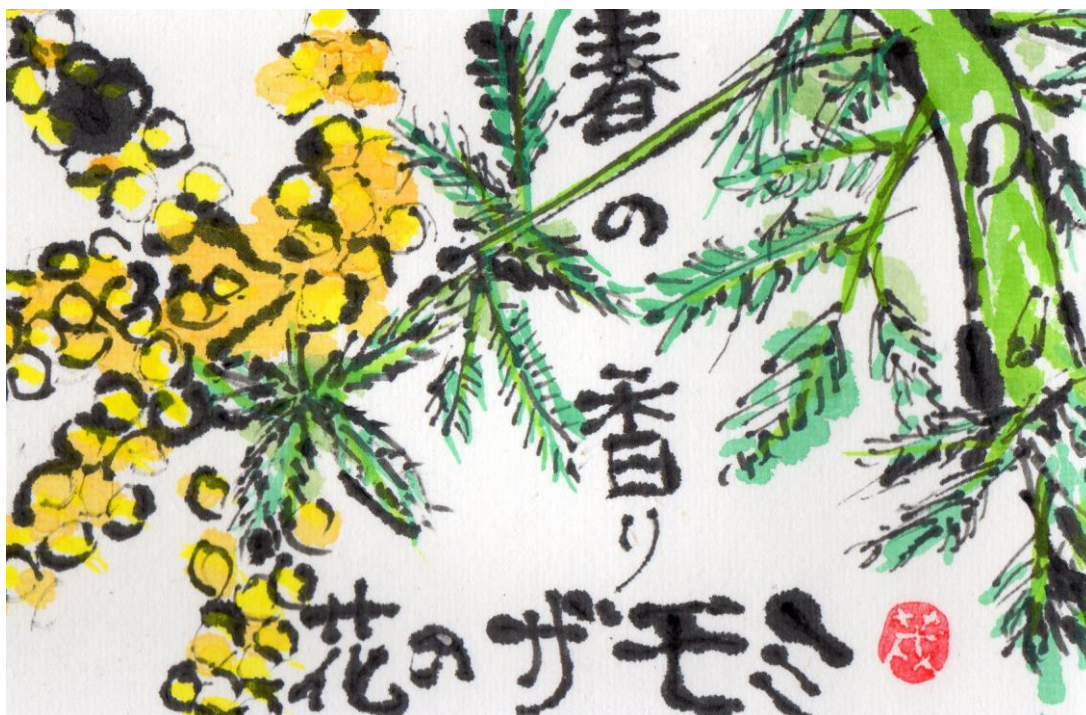 春の香り
ミモザの花